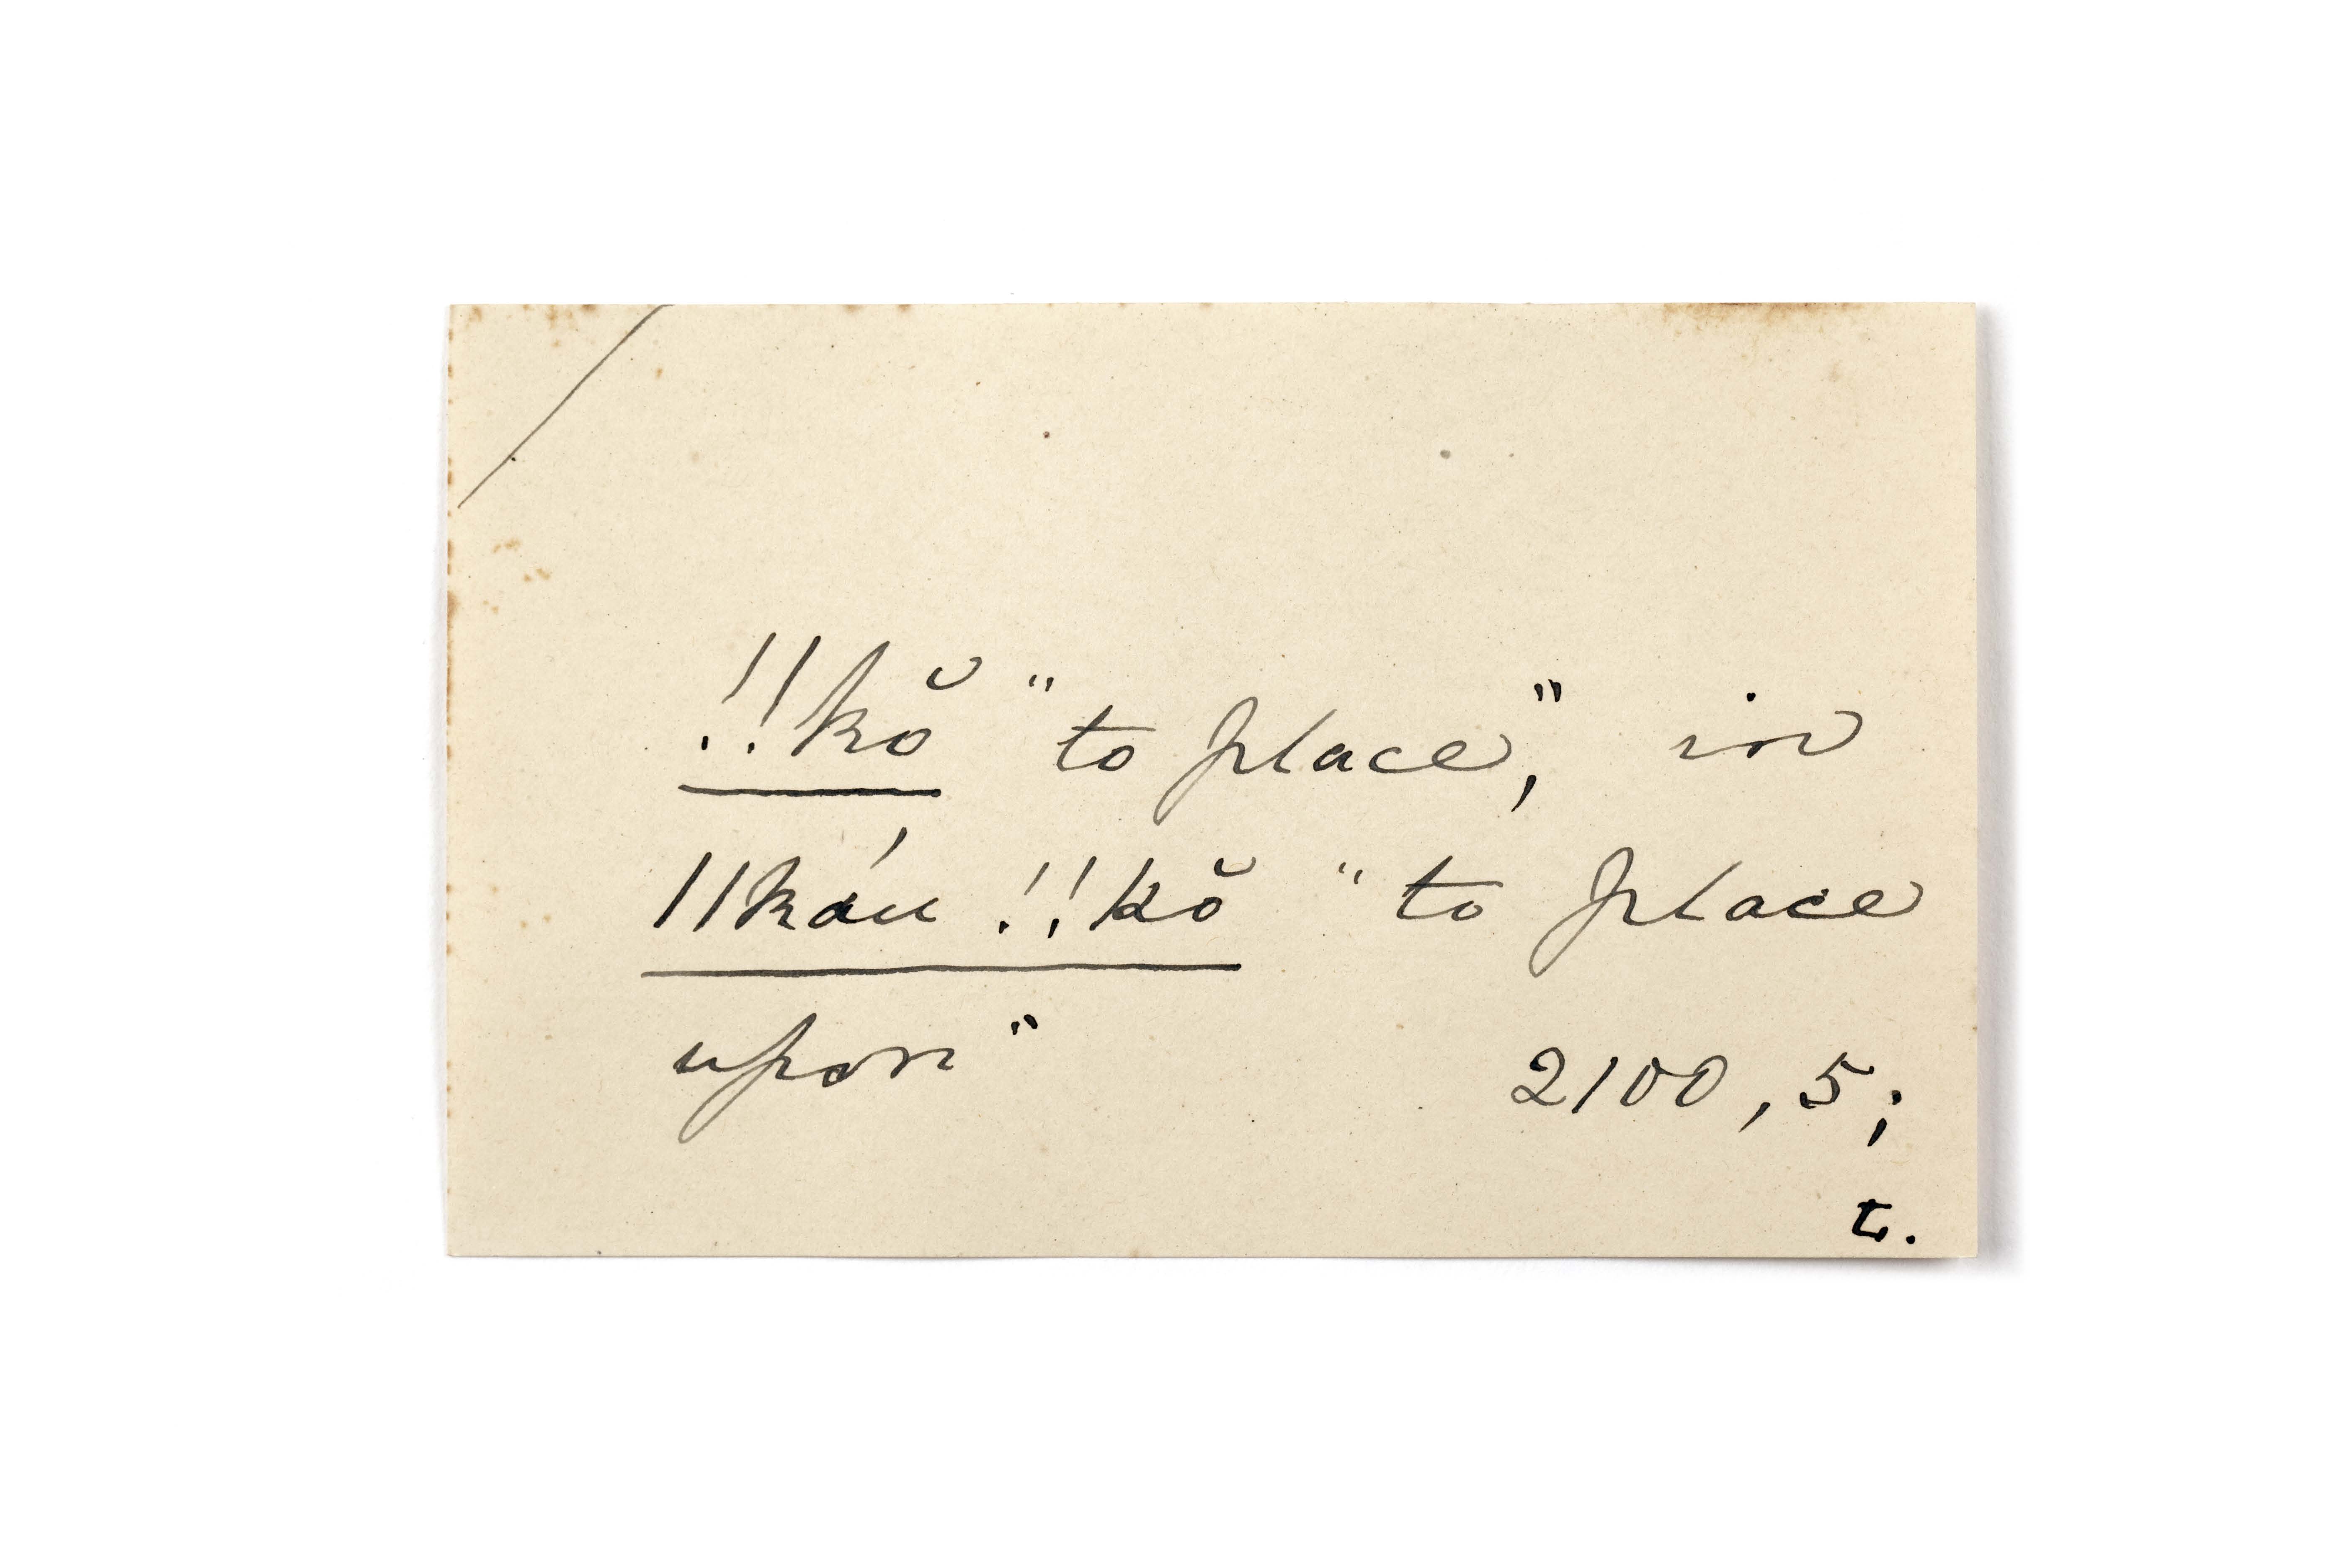 !!kŏ "to place," in
ǁkáu !!kŏ "to place
upon" 2100, 5;
t.